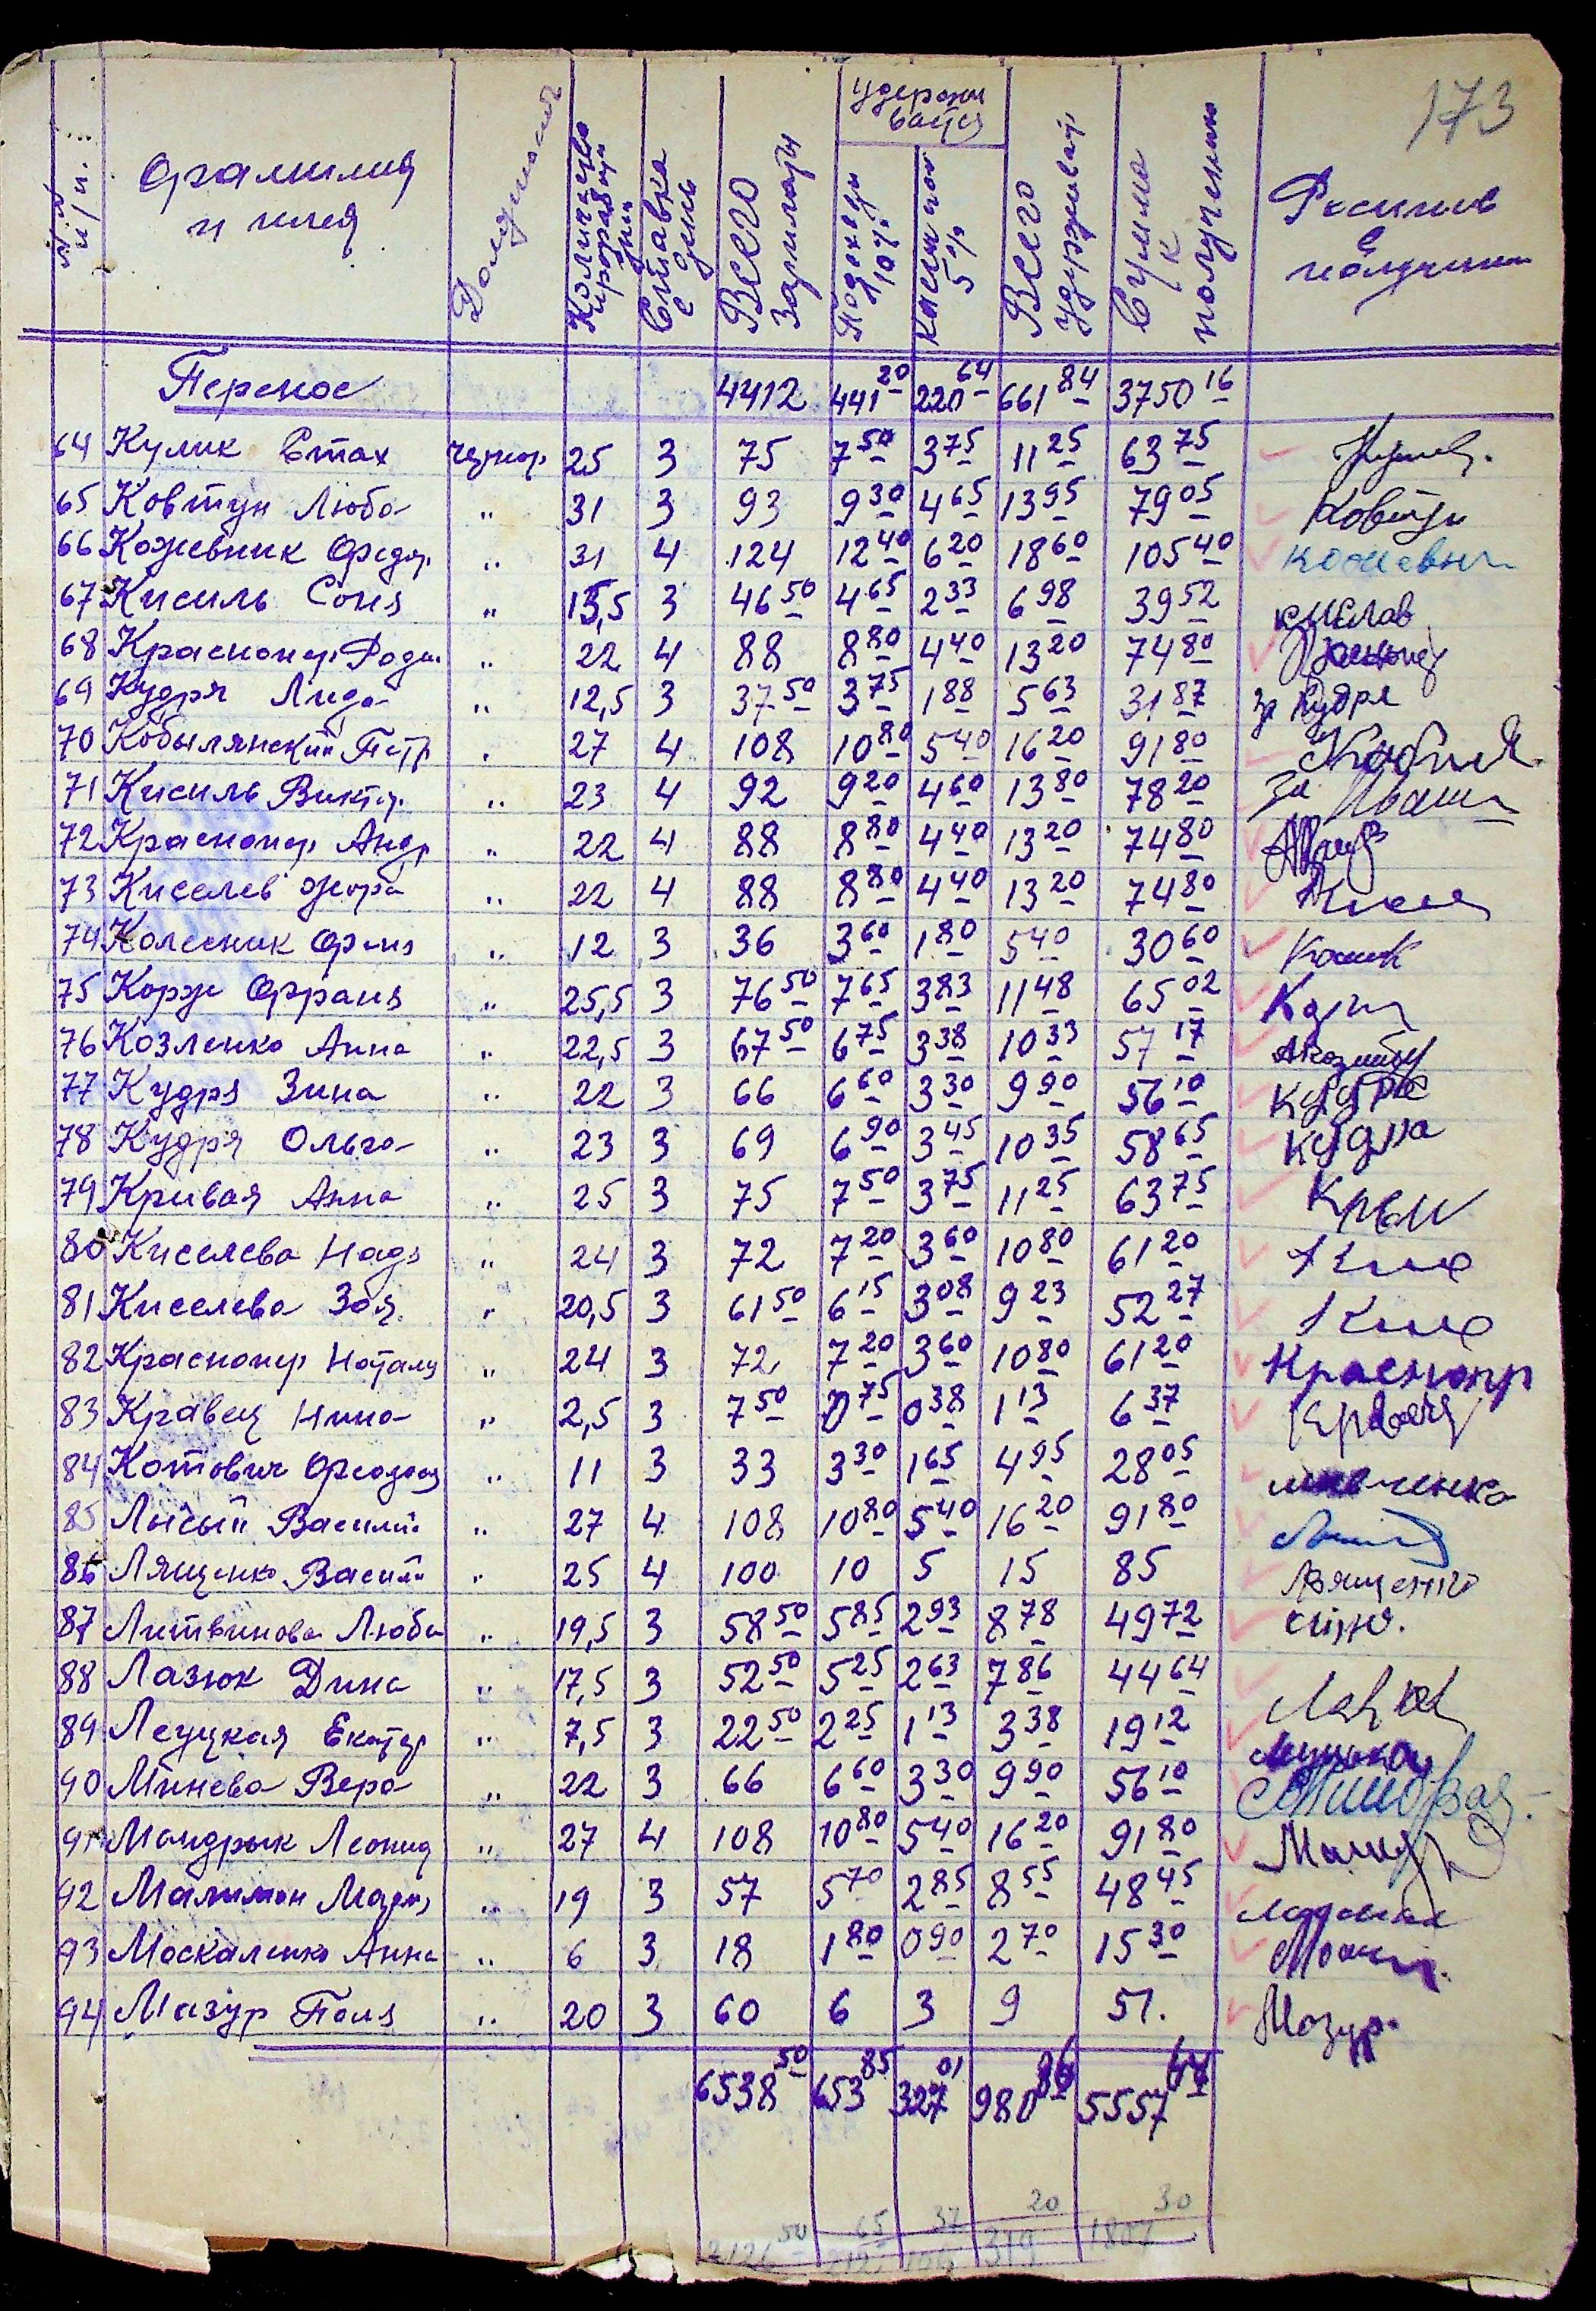 173
№№ п/п.
Фамилия и имя
Должность
Количество прораб. дни
Ставка в день
Всего зарплаты
Удерживается
Подоход 10%
5%
Всего удержив.
Сумма к получению
Роспись в получении
Перенос 4412 441 20 220 64 661 84 3750 16
64 Кулик Стах чернор. 25 3 75 7 50 3 75 11 25 63 75
65 Ковтун Люба " 31 3 93 9 30 4 65 13 95 79 05 Ковтун
66 Кожевник Федр. " 31 4 124 12 40 6 20 18 60 105 40
67 Кисиль Соня " 15,5 3 46 50 4 65 2 33 6 98 39 52
68 Краснопер. Роди. " 22 4 88 8 80 4 40 13 20 74 80
69 Кудря Лида " 12,5 3 37 50 3 75 1 88 5 63 31 87 за Кудря
70 Кобылянский Петр " 27 4 108 10 80 5 40 16 20 91 80
71 Кисиль Виктор. " 23 4 92 9 20 4 60 13 80 78 20 за
72 Краснопер. Андр " 22 4 88 8 80 4 40 13 20 74 80
73 Киселев Жора " 22 4 88 8 80 4 40 13 20 74 80
74 Колесник Феня " 12 3 36 3 60 1 80 5 40 30 60
75 Корж Франя " 25,5 3 76 50 7 65 3 83 11 48 65 02
76 Козленко Анна " 22,5 3 67 50 6 75 3 38 10 33 57 17
77 Кудря Зина " 22 3 66 6 60 3 30 9 90 56 10 Кудря
78 Кудря Ольга " 23 3 69 6 90 3 45 10 35 58 65 Кудра
79 Кривая Анна " 25 3 75 7 50 3 75 11 25 63 75
80 Киселева Надя " 24 3 72 7 20 3 60 10 80 61 20
81 Киселева Зоя " 20,5 3 61 50 6 15 3 08 9 23 52 27
82 Краснопер Наталя " 24 3 72 7 20 3 60 10 80 61 20 Краснопр
83 Кравец Нина " 2,5 3 7 50 0 75 0 38 1 13 6 37
84 Котович Феодося " 11 3 33 3 30 1 65 4 95 28 05
85 Лысый Василий " 27 4 108 10 80 5 40 16 20 91 80
86 Лященко Васили " 25 4 100 10 5 15 85 Лященко
87 Литвинова Люба " 19,5 3 58 50 5 85 2 93 8 78 49 72
88 Лазюк Дина " 17,5 3 52 50 5 25 2 63 7 86 44 64
89 Леуцкая Екатер " 7,5 3 22 50 2 25 1 13 3 38 19 12
90 Минева Вера " 22 3 66 6 60 3 30 9 90 56 10
91 Мандрык Леонид " 27 4 108 10 80 5 40 16 20 91 80
92 Малимон Мария " 19 3 57 5 70 2 85 8 55 48 45
93 Москаленко Анна " 6 3 18 1 80 0 90 2 70 15 30
94 Мазур Поля " 20 3 60 6 3 9 51. Мазур.
6538 50 653 85 327 01 980 86 5557 64
2126 50 212 65 106 37 319 20 1807 30